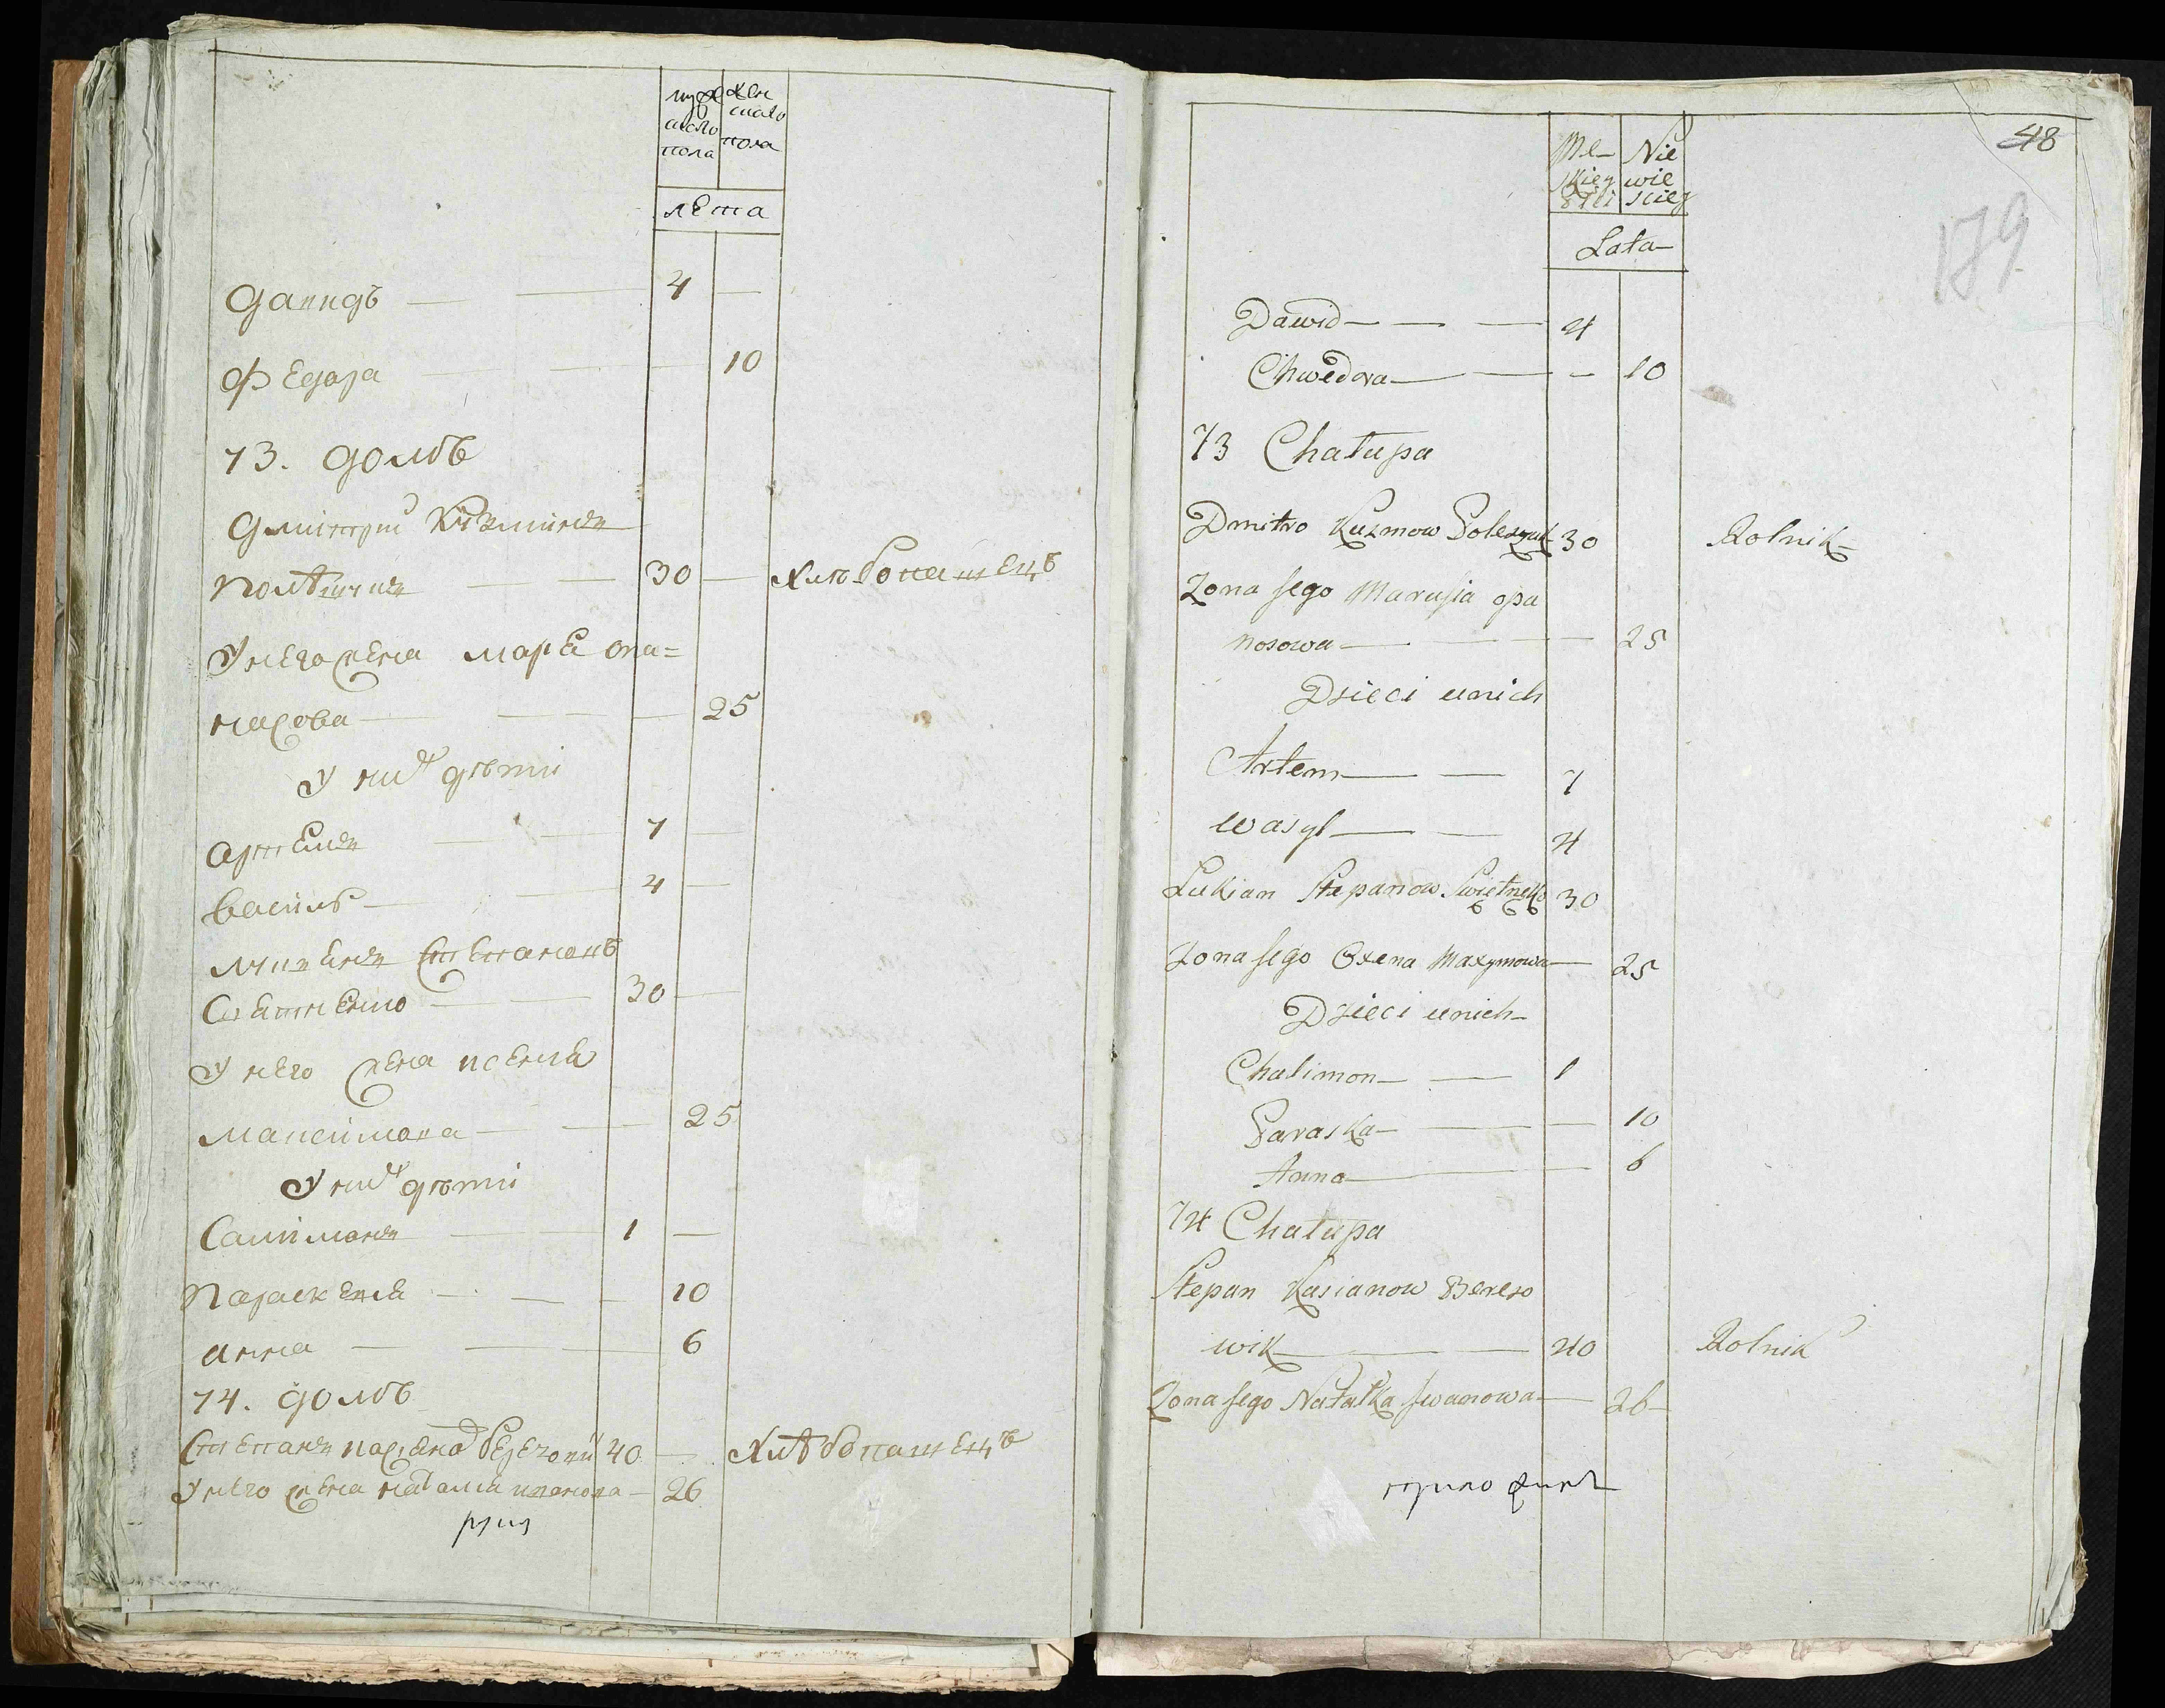 муже
ского
пола
жен
скаго
пола
лета
Давидъ — 4 —
Федора — 10
73. домъ
Дмитрий Кузминъ
Полещукъ — 30 — хлебопашецъ
У него жена Маря Опа=
насова — 25
У них дети
Артемъ — 7 —
Василь — 4 —
Лукианъ Степановъ
Светненко — 30 —
У него жена Ксеня
Максимова — 25
У них дети
Салимонъ — 1 —
Параскевия — — 10
Анна — 6
74. домъ
Степанъ Касянов 40 — Хлебопашецъ
У него жена Наталия Иванова — 26
Mę-
skiey
płci
Nie
wie
sciey
Lata
48
179
Dawid — 4
Chwedora — — 10
73 Chałupa
Dmitro Kuzmow Poleszuk 30 Rolnik
Zona jego Marusia opa
nosowa — 25
Dzieci unich
Artem — 7
wasyl — 4
Lukian Stepanow Swietnenko 30
Zona jego Oxena Maxymowa — 25
Dzieci unich
Chalimon — 1
Paraska — — 10
Anna — 6
74 Chałupa
Stepan Kasianow Berezo
wik — 40 Rolnik
Zona jego Natałka Iwanowa — 26